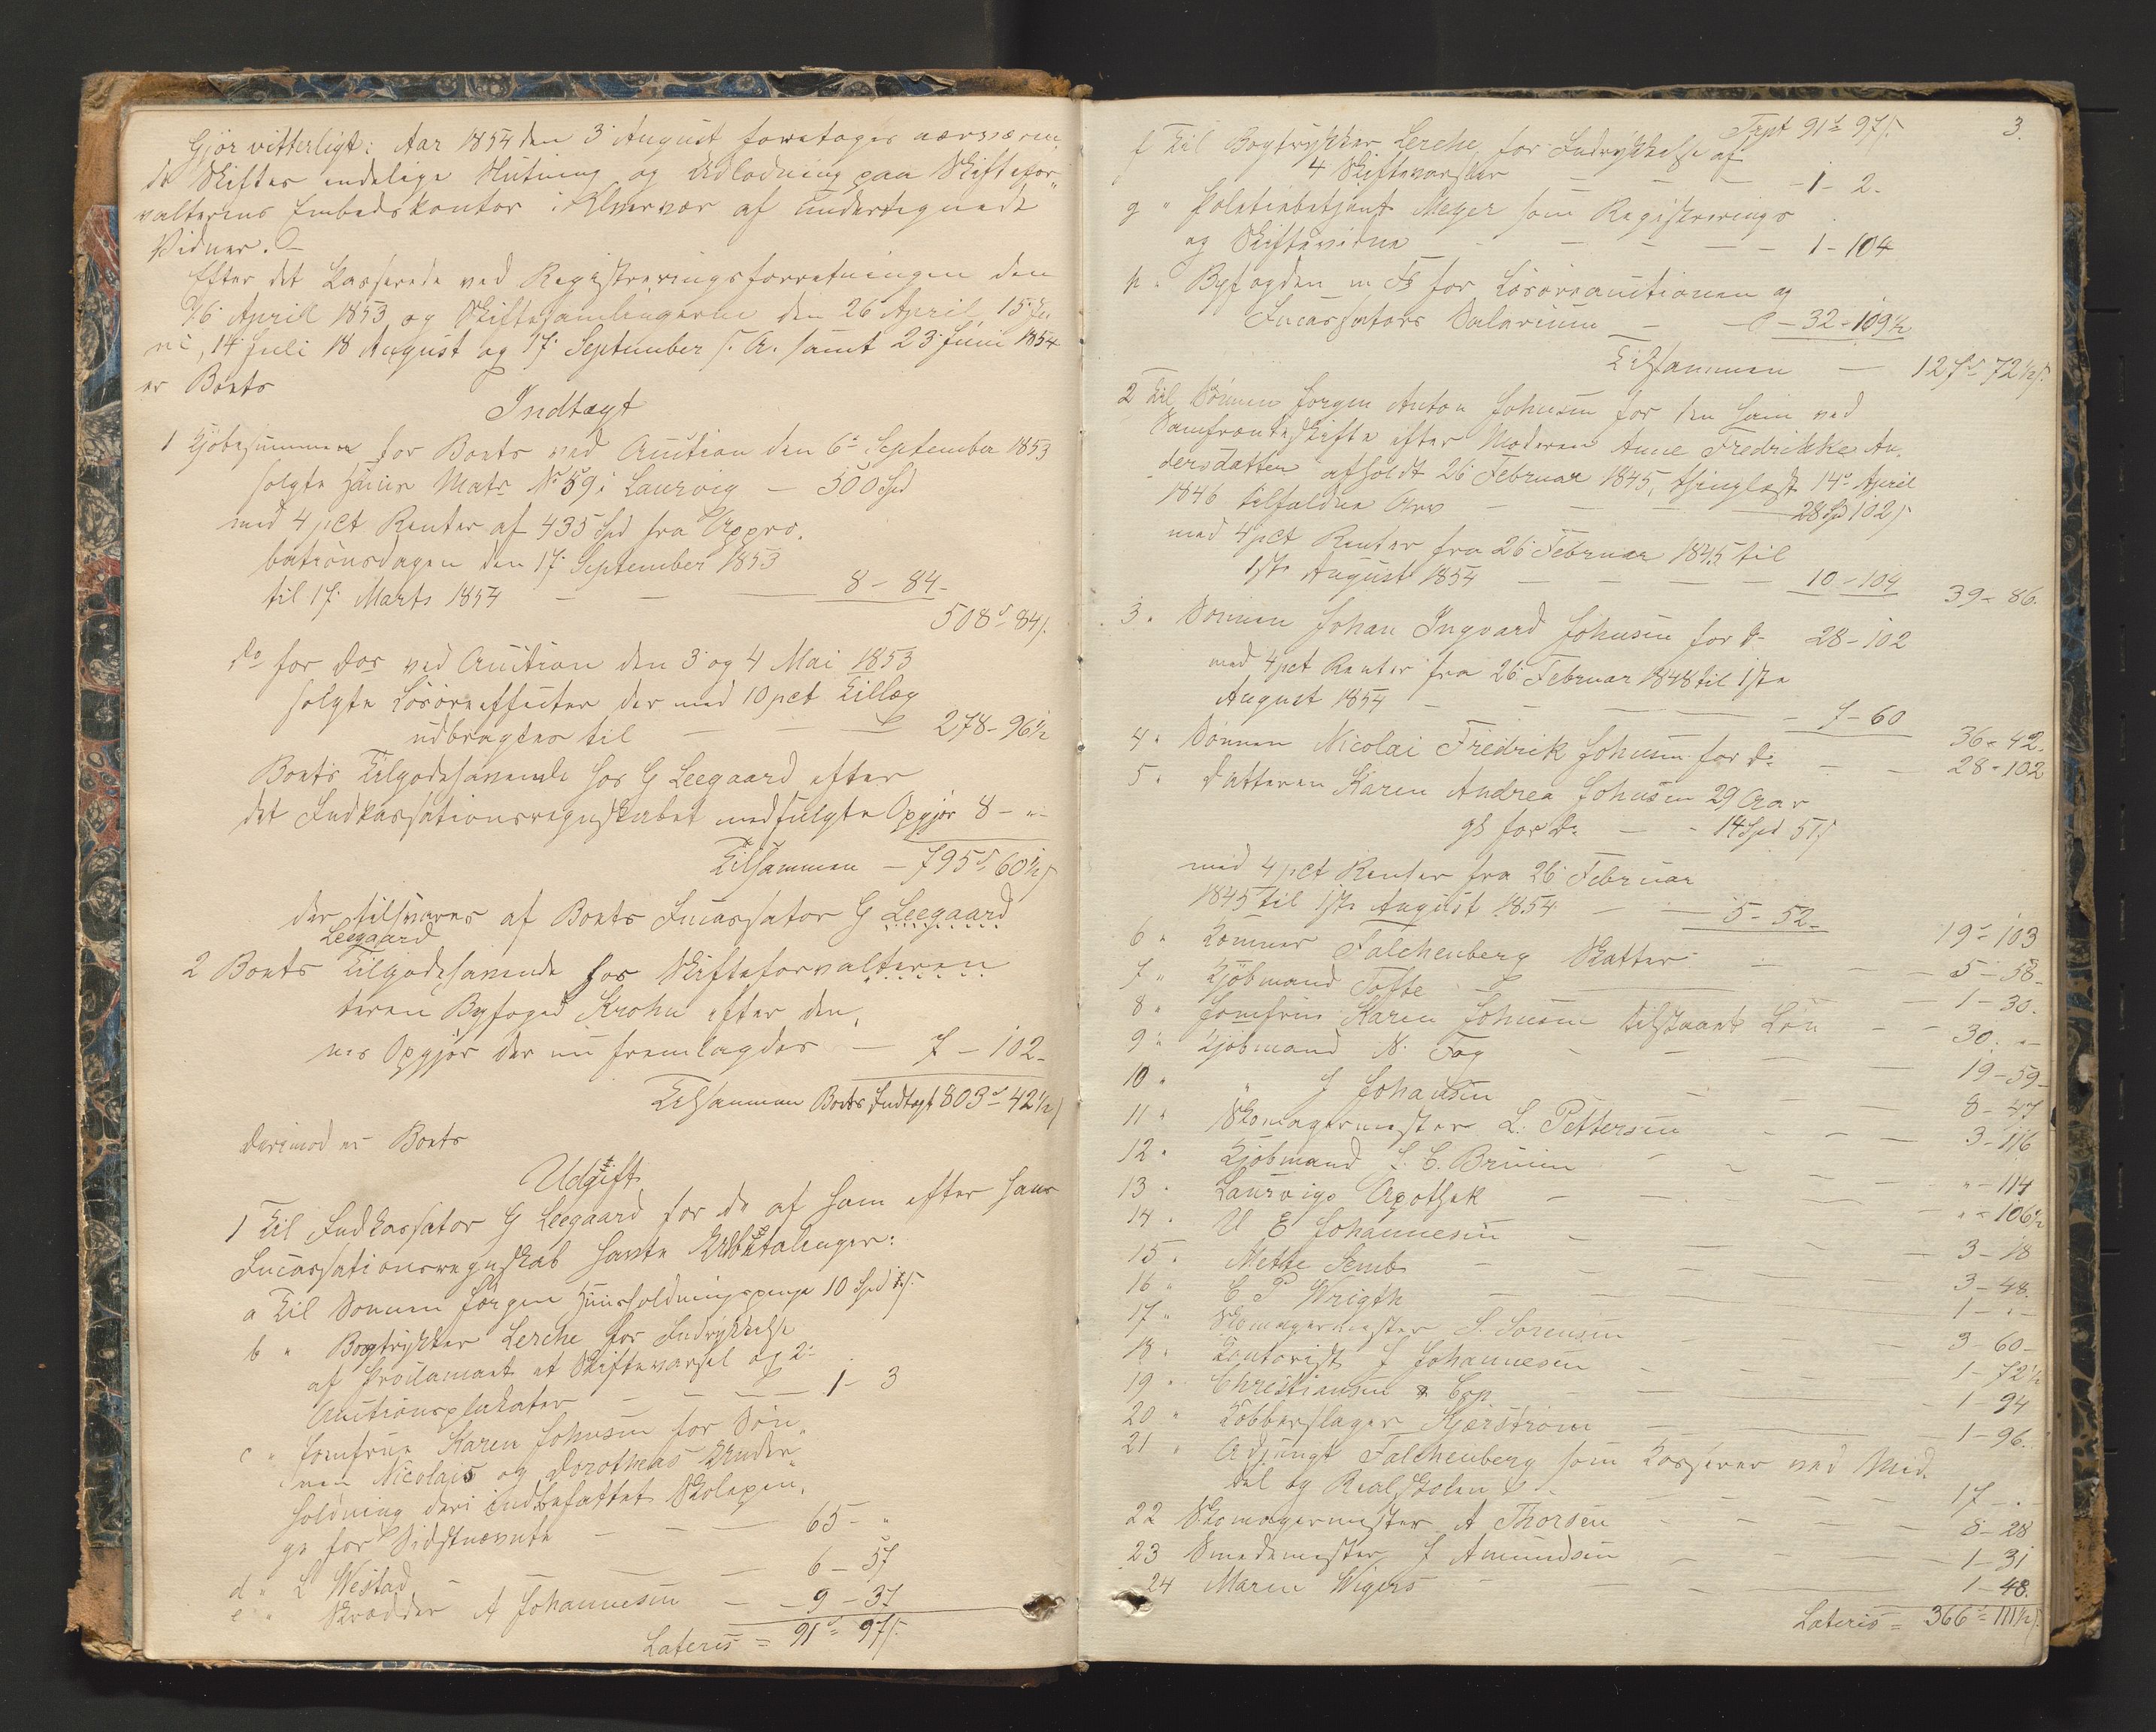 Gjør vitterligt: Aar 1854 den 3die August foretages nærværen„
de Skiftes endelige Slutning og Udlodning paa Skiftefor„
valterens Embedskontor i af undertegnede
Vidner. –
Efter det Passerede ved Registreringsforretningen den
26 April 1853 og Skiftesamlingerne den 26 April, 15 Ju
ni, 14 Juli 18 August og 17 September s. A. samt 23 Juni 1854
er Boets
Indtægt
1 Kjøbesummen for Boets ved Auction den 6te September 1853
solgte Huus Matr No 59 i Laurvig — 500 Spd
med 4 pCt Renter af 435 Spd fra Appro„
bationsdagen den 17 September 1853
til 17 Marts 1854 — — 8 – 84 –
508 – 84 s.
do for dos ved Auction den 3 og 4 Mai 1853
solgte Løsøreeffecter der med 10 pct Tillæg
udbragtes til — — 278 – 96½
Boets Tilgodehavende hos G Leegaard efter
det Indkassationsregnskabet medfulgte Opgjør 8 – „ –
Tilsammen — 795 – 60½ s
der tilsvares af Boets Incassator G Leegaard
Leegaard
2 Boets Tilgodehavende hos Skifteforvalteren
teren Byfoged Krohn efter den„
nes Opgjør der nu fremlagdes — 7 – 102 –
Tilsammen Boets Indtægt 803 – 42½ s
Derimod er Boets
Udgift
1 Til Indkassator G Leegaard for de af ham efter hans
Incassationsregnskab havte Udbetalinger:
a Til Sønnen Jørgen Huusholdningspenge 10 Spd „ s.
b „ Bogtrykker Lerche for Indrykkelse
af Proclamaet et Skiftevarsel og 2
Auctionsplakater — — 1 – 3
c „ Jomfrue Karen Johnsen for Søn„
nen Nicolais og Dorotheas Under„
holdning deri indbefattet Skolepen„
ge for Sidstnævnte — — — 65 – „
d „ L Westad — — 6 – 57
e „ Skrædder A Johannesen — — 9 – 37
Lateris = 91 – 97 s.
3.
Trpt 91 – 97 s.
f Til Bogtrykker Lerche for Indrykkelse af
4 Skiftevarsler — — — 1 – 2.
g „ Politiebetjent Meyer som Registrerings
og Skiftevidne — — — — 1 – 104
h „ Byfogden m Fl for Løsøreauctionen og
Incassators Salarium — — 32 – 109½
Tilsammen — 127 – 72½ s.
2 Til Sønnen Jørgen Anton Johnsen for den ham ved
Samfrændeskifte efter Moderen Anne Fredrikke An„
dersdatter afholdt 26 Februar 1845, thinglæst 14de April
1846 tilfaldne Arv — — — 28 Spd 102 s
med 4 pCt Renter fra 26 Februar 1845 til
1ste August 1854 — — — — 10 – 104
39 – 86.
3 „ Sønnen Johan Ingvard Johnsen for do 28 – 102
med 4 pct Renter fra 26 Februar 1848 til 1ste
August 1854 — — — — 7 – 60
36 – 42.
4 „ Sønnen Nicolai Fredrik Johnsen for do — — 28 – 102
5 „ Datteren Karen Andrea Johnsen 29 Aar
gl for do — – 14 Spd 51 s
med 4 pCt Renter fra 26 Februar
1845 til 1ste August 1854 — — 5 – 52 –
19 – 103
6 „ Kæmner Falchenberg Skatter — — 5 – 58 –
7 „ Kjøbmand Tofte — — 1 – 30.
8 „ Jomfru Karen Johnsen tilstaaet Løn — — 30. „ –
9 „ Kjøbmand N. Fog — — — 19 – 59 –
10 „ „ J Johansen — — 8 – 47
11 „ Skomagermester L. Pettersen — — — 3 – 116
12 „ Kjøbmand J. C. Bruun — — — „ – 114
13 „ Laurvigs Apothek — — — „ – 106½
14 „ U E Johannesen — — — 3 – 18
15 „ Mette Semb — — — 3 – 48.
16 „ C P Wrigth — — — 1 – „ –
17 „ Skomagermester S. Sørensen — — 3 – 60 –
18 „ Contorist J Johannesen — — 1 – 72½
19 „ Christiansen & Cop — — — 1 – 94
20 „ Kobberslager Kjerstrøm — — 1 – 96.
21 „ Adjunct Falchenberg som Kasserer ved Mid„
del og Realskolen — — — 17 – „ –
22 Skomagermester A Thorsen — — — 8 – 28
23 Smedemester J Amundsen — — 1 – 31
24 Maren Wigers — — — 1 – 48.
Lateris = 366 – 111½ s.